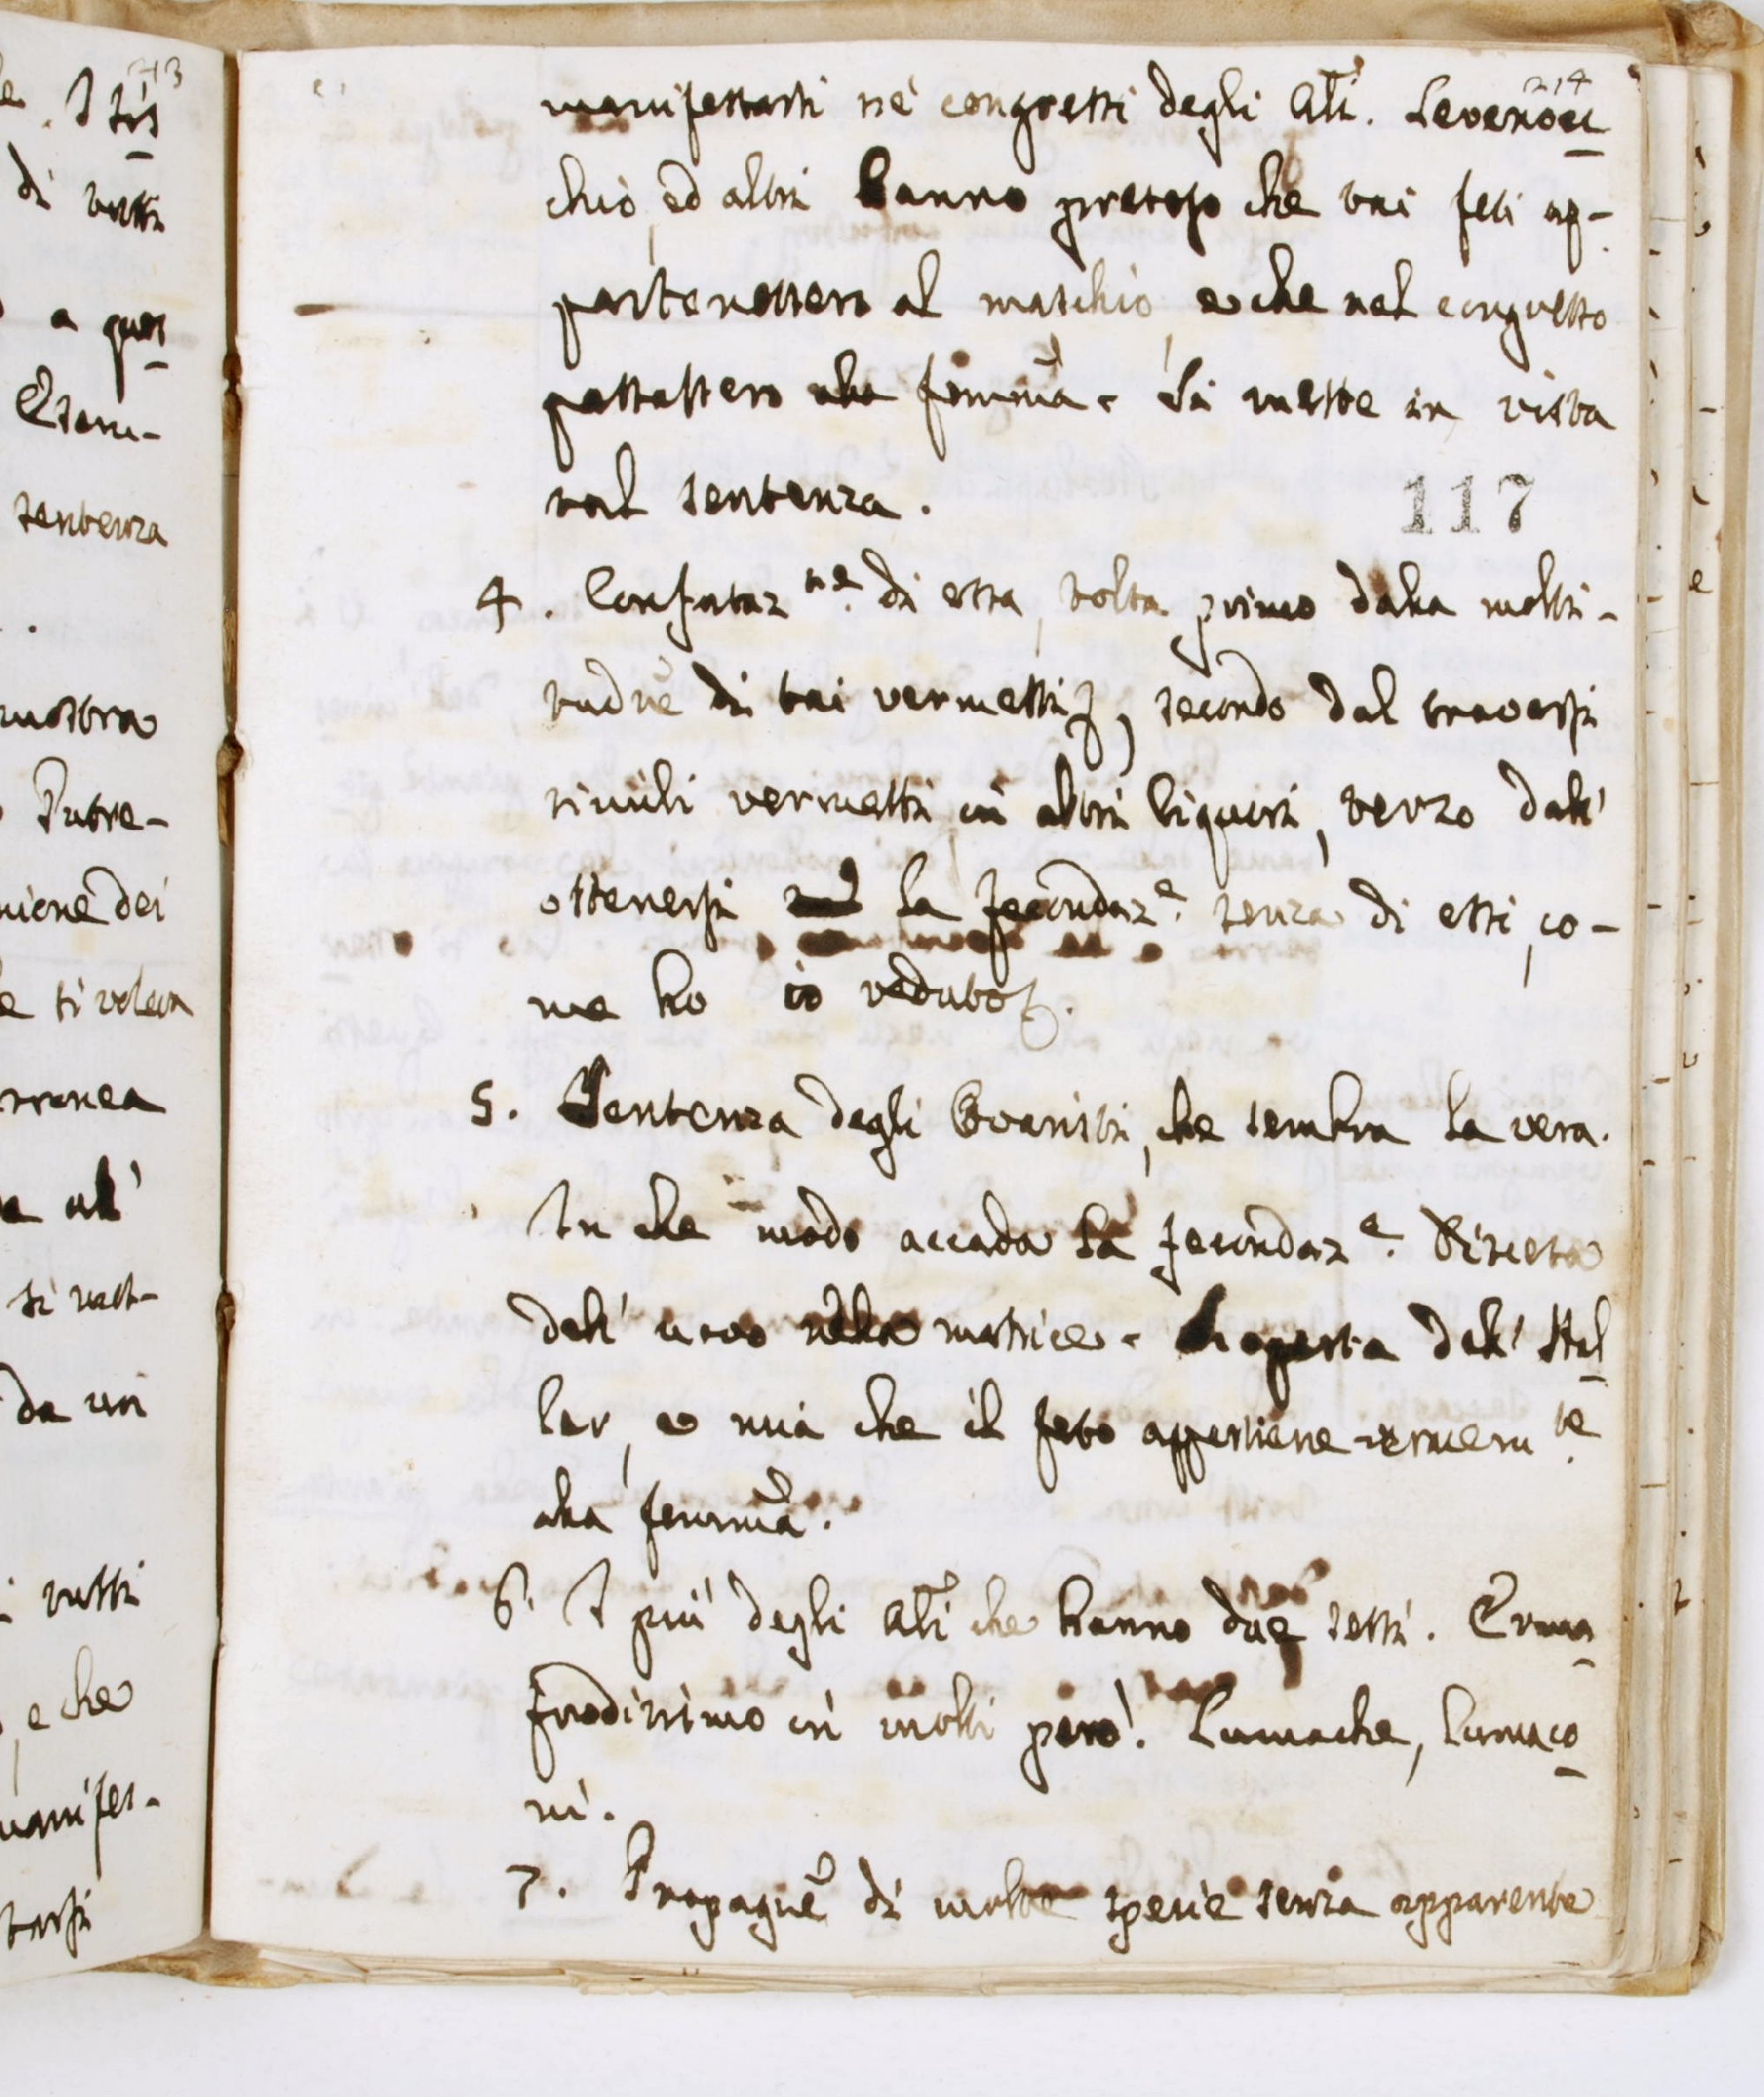 214
manifestarsi ne' congressi degli Ali. Levenoec
chio, ed altri hanno preteso che tai feti ap-
partenessero al maschio, e che nel congresso
passassero alla femina. Si mette in vista
tal sentenza.
117
4. Confutaz.ne di essa, tolta primo dalla molti-
tudne di tai vermetti, secondo dal trovarsi
simili vermetti in altri liquori, terzo dall'
ottenersi la fecondaz.e senza di essi, co-
me ho io veduto.
5. Sentenza degli Ovaristi, che sembra la vera.
In che modo accada la fecondaz.e. Discesa
dell' uovo nella matrice. Scoperta dell' Hal
ler, e mia che il feto appartiene veramen.te
alla femina.
6. I più degli Ali che hanno due sessi. Erma
frodisismo in molti però. Lumache, lumaco
ni.
7. Propagne di molte specie senza apparente